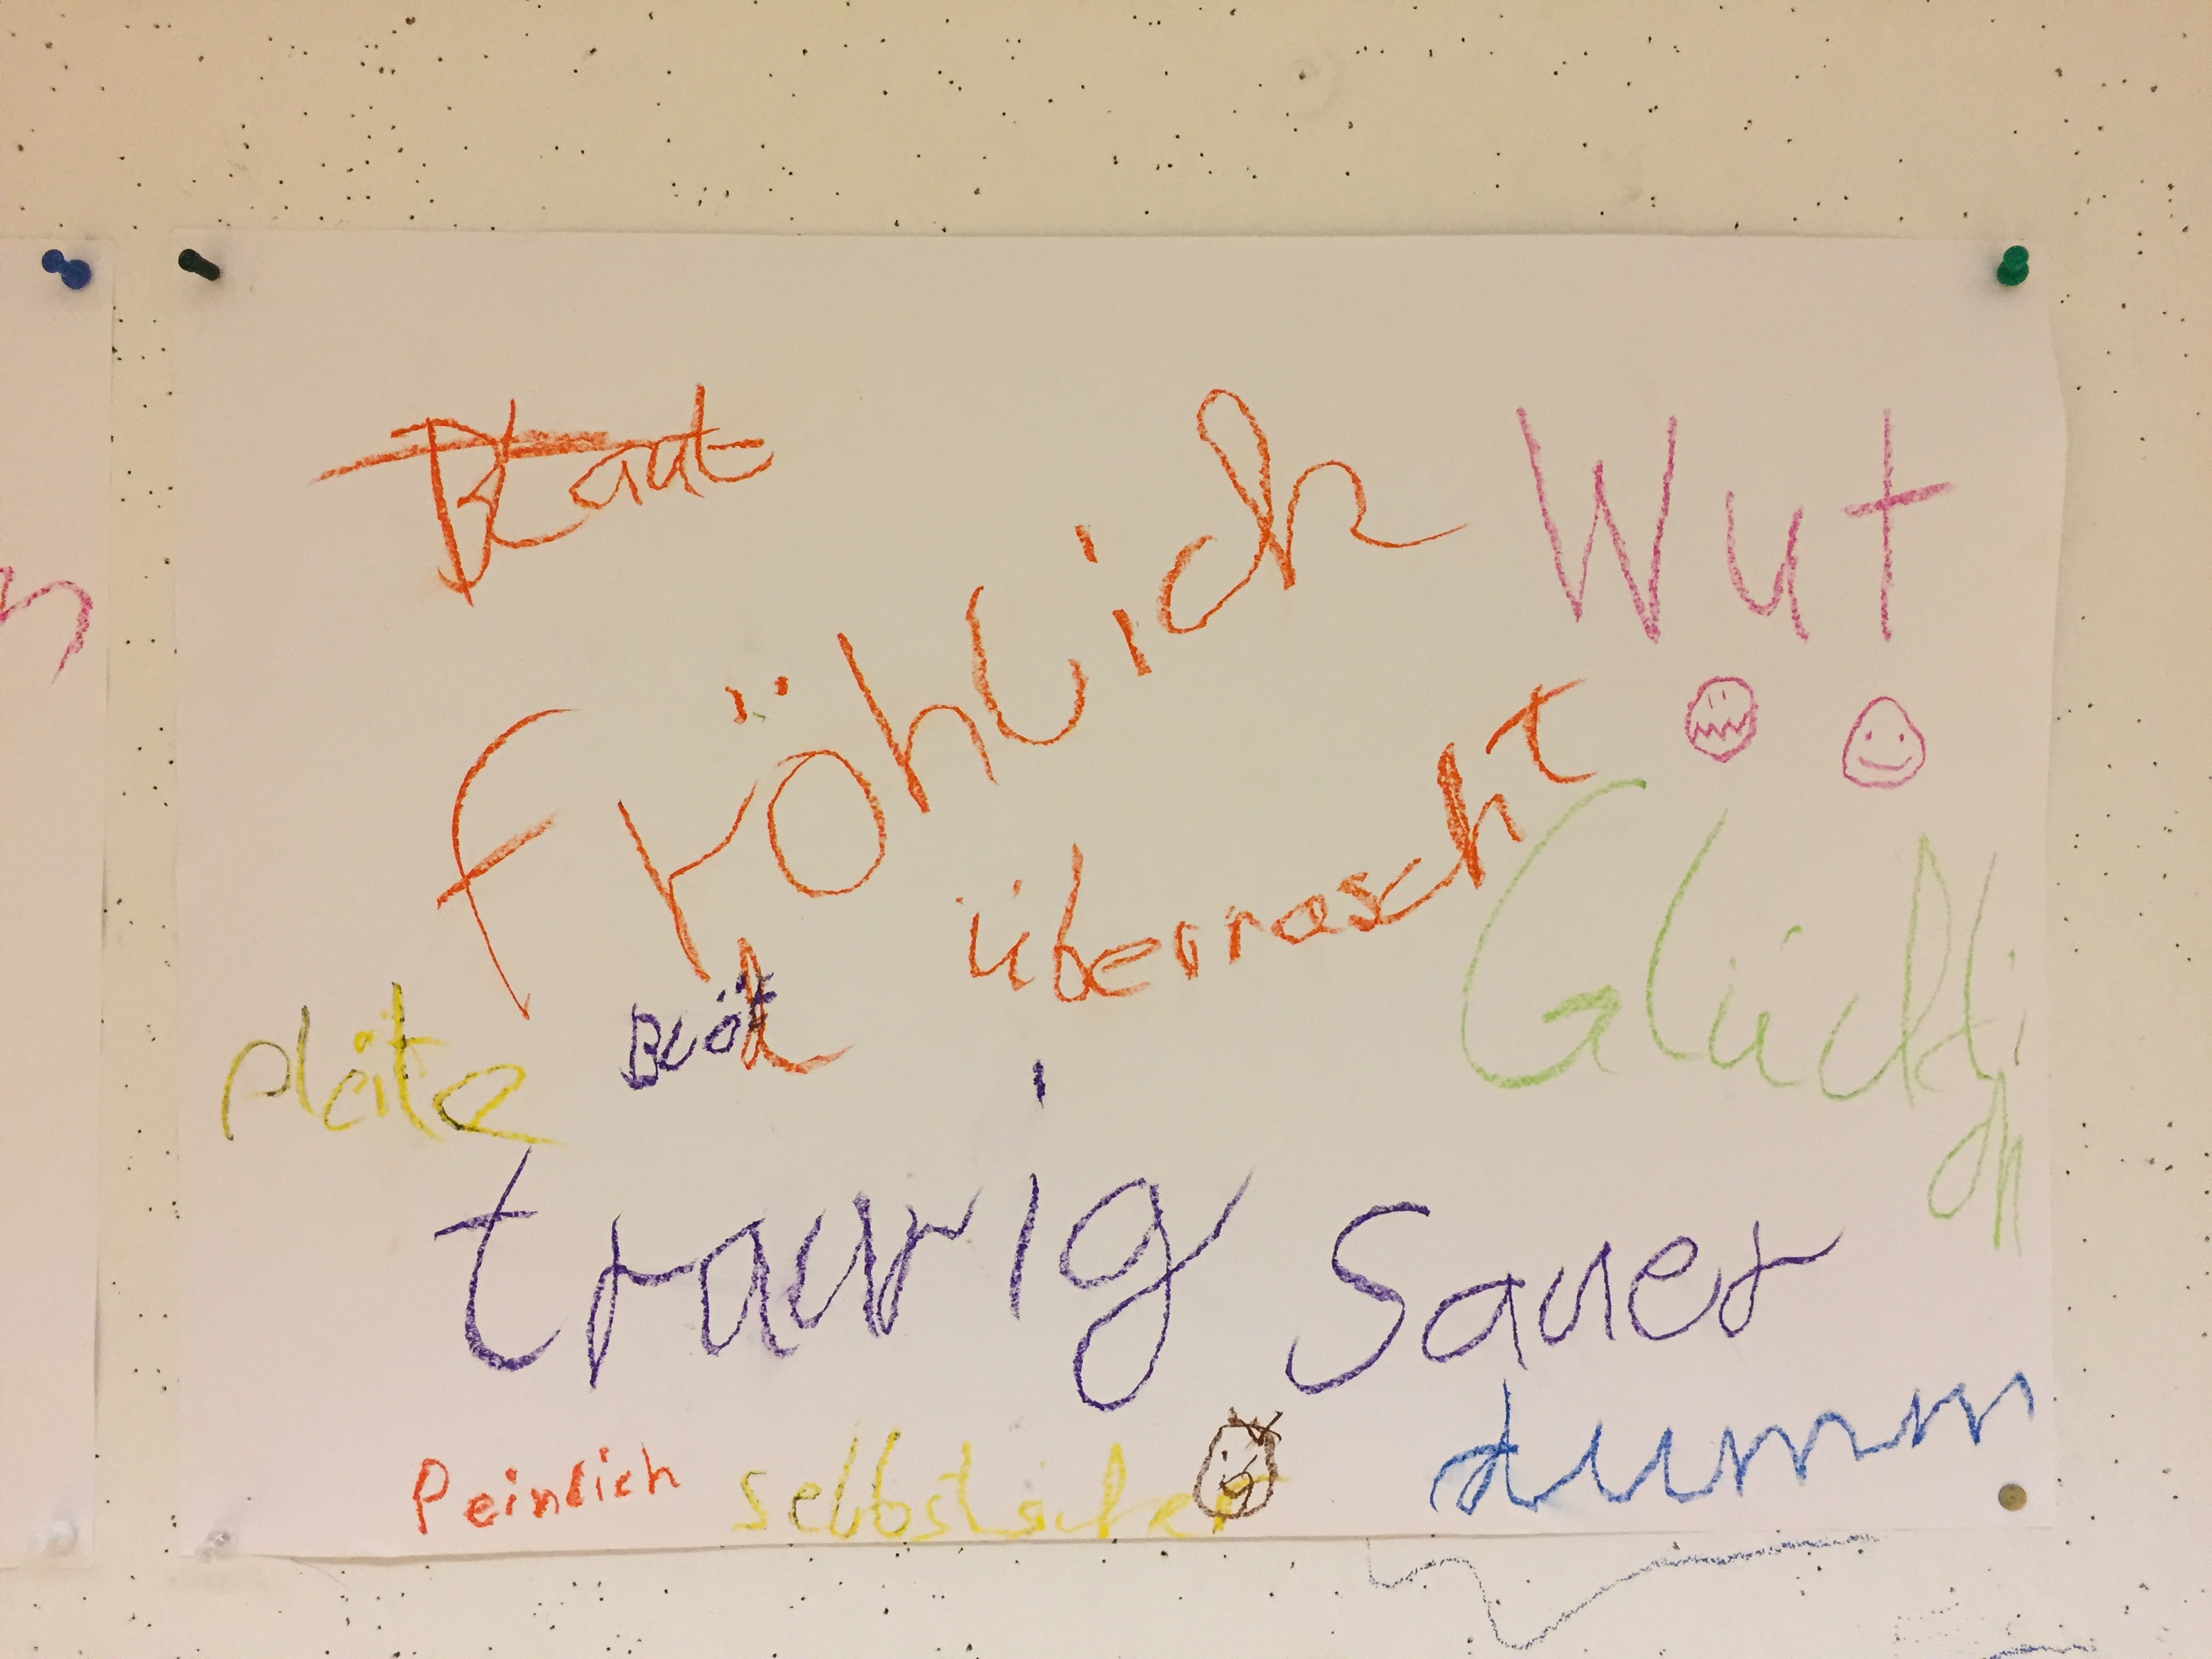 Wut
Fröhlich
überrascht
Glücklich
Blöt
traurig
Sauer
Peinlich
selbstsicher
dumm